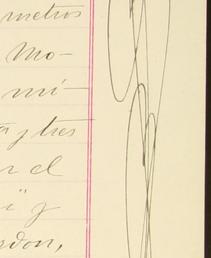 metros
Mo-
mi-
a y tres
el
y
rdon,